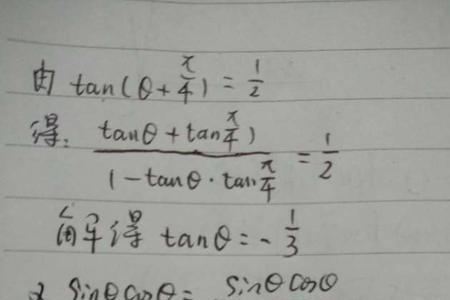 由 tan(θ+π/4)=1/2
得: (tanθ+tanπ/4))/(1-tanθ·tanπ/4)=1/2
解得 tanθ=-1/3
sinθcosθ= sinθcosθ